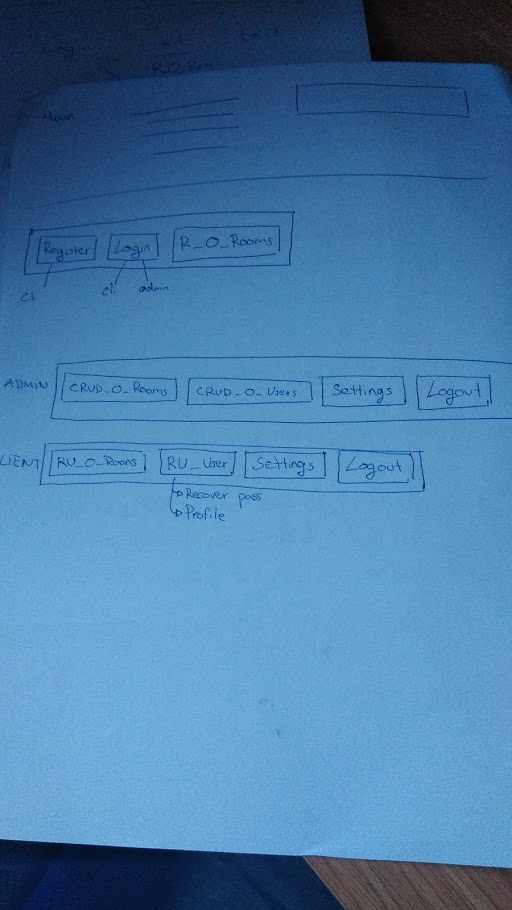 Main
Register Login R_O_Rooms
cli cli admin
ADMIN CRUD_O_Rooms CRUD_O_Users Settings Logout
LIENT RU_O_Rooms RU_User Settings Logout
Recover pass
Profile